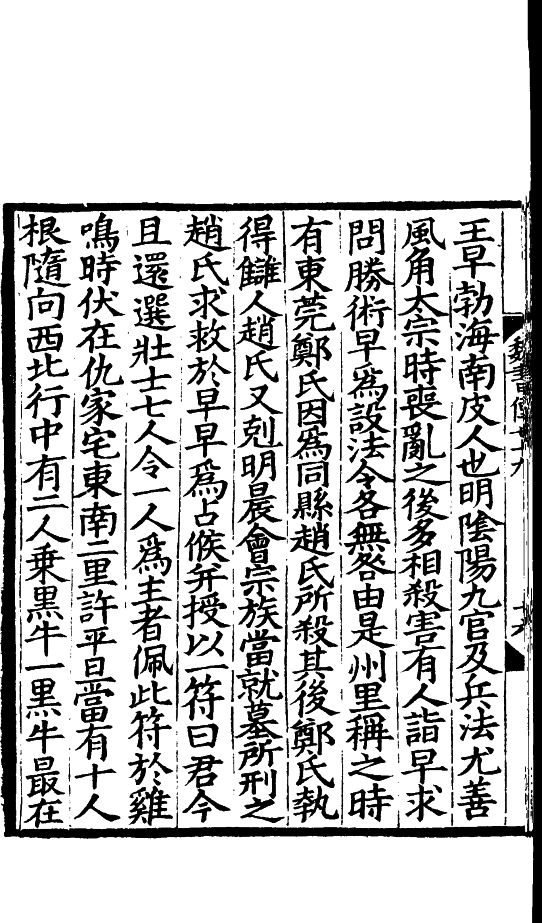 王早勃海南皮人也明陰陽九宮及兵法尤善
風角太宗時喪亂之後多相殺害有人詣早求
問勝術早爲設法令各無咎由是州里稱之時
有東莞鄭氏因爲同縣趙氏所殺其後鄭氏執
得讎人趙氏又剋明晨會宗族當就墓所刑之
趙氏求救於早早爲占候并授以一符曰君今
且還選壯士七人令一人爲主者佩此符於雞
鳴時伏在仇家宅東南二里許平旦當有十人
根隨向西北行中有二人乗黑牛一黑牛最在